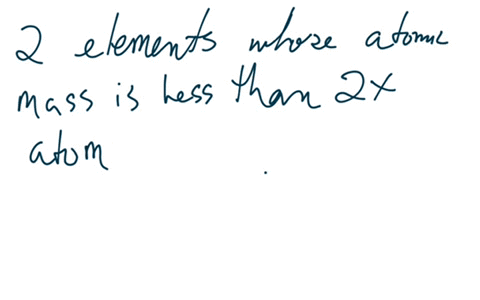 2 elements whose atomic
mass is less than 2x
atom